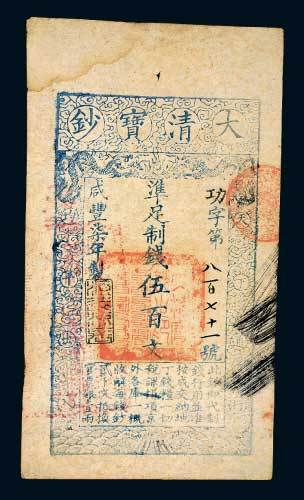 大清寶鈔
功字第八百七十一號
準足制錢伍百文
咸豐柒年製
此鈔即代制
錢行用並准
按成交納地
丁錢糧一切
稅課捐項京
外各庫一概
收解每錢鈔
貳千文抵換
官票銀壹兩